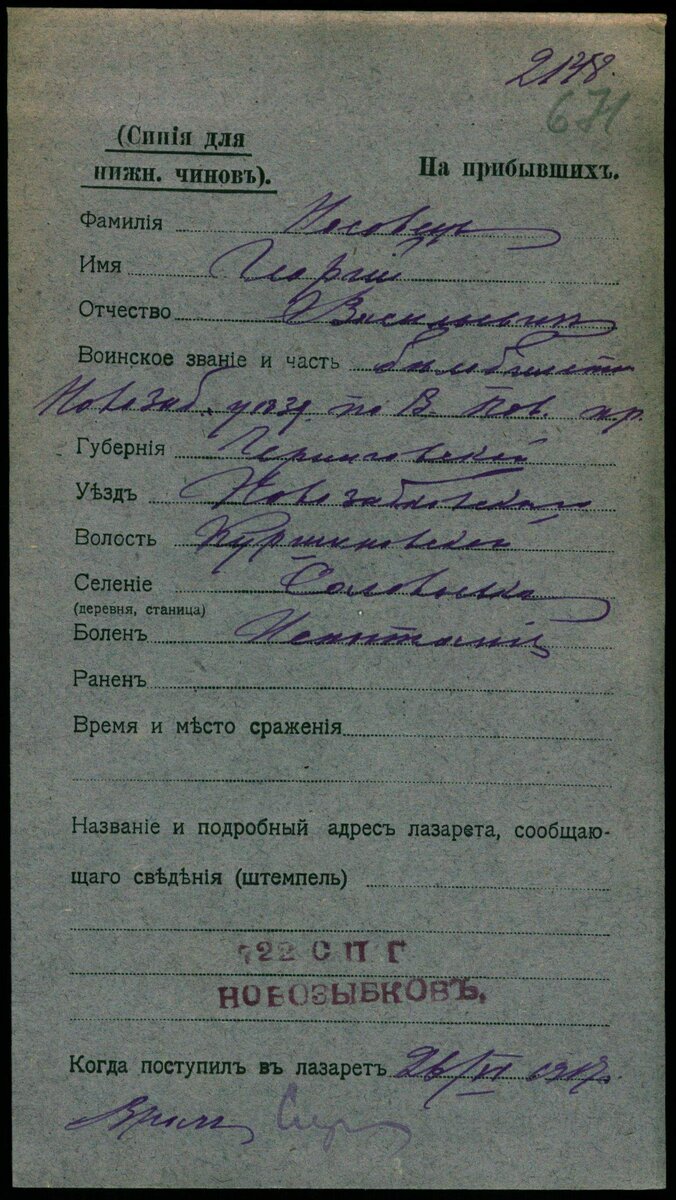 2178.
671
(Синія для
нижн. чиновъ).
На прибывшихъ.
Фамилія Носовецъ
Имя Георгій
Отчество Васильевич
Воинское званіе и часть
Новозыб. уезд. по В. Пов. пр.
Губернія Черниговской
Уѣздъ Новозыбковскаго
Волость
Селеніе Соловьевка
(деревня, станица)
Боленъ Испытаній
Раненъ
Время и мѣсто сраженія
Названіе и подробный адресъ лазарета, сообщаю-
щаго свѣдѣнія (штемпель)
722 С П Г
НОВОЗЫБКОВЪ.
Когда поступилъ въ лазаретъ 26/VI 1917.
Врем.